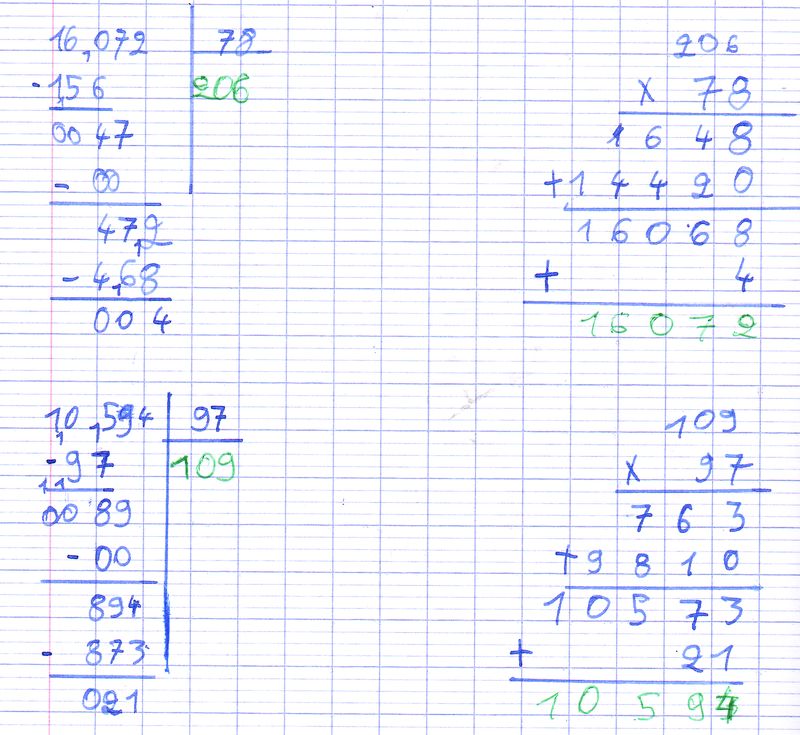 16072 78
-156 206
0047
- 00
472
- 468
004
206
x 78
1648
+14420
16068
+ 4
16072
10594 97
-97 109
0089
- 00
894
- 873
021
109
x 97
763
+9810
10573
+ 21
10594